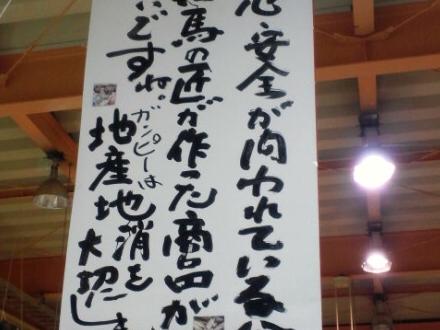 心・安全が問われている
馬の匠が作った商品が
いですね。
ガンピーは
地産地消を
大切にし